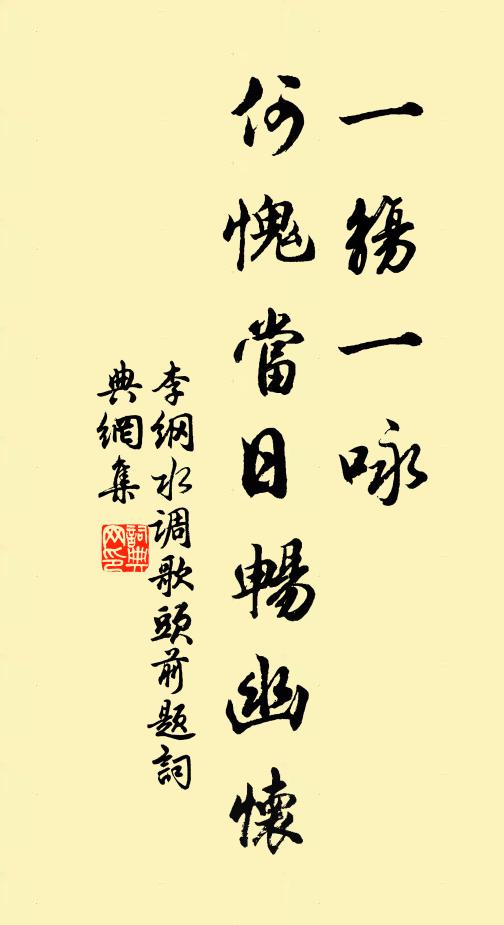 一觴一咏
何愧當日暢幽懷
李綱水调歌頭前題詞
典網集
詞典网印